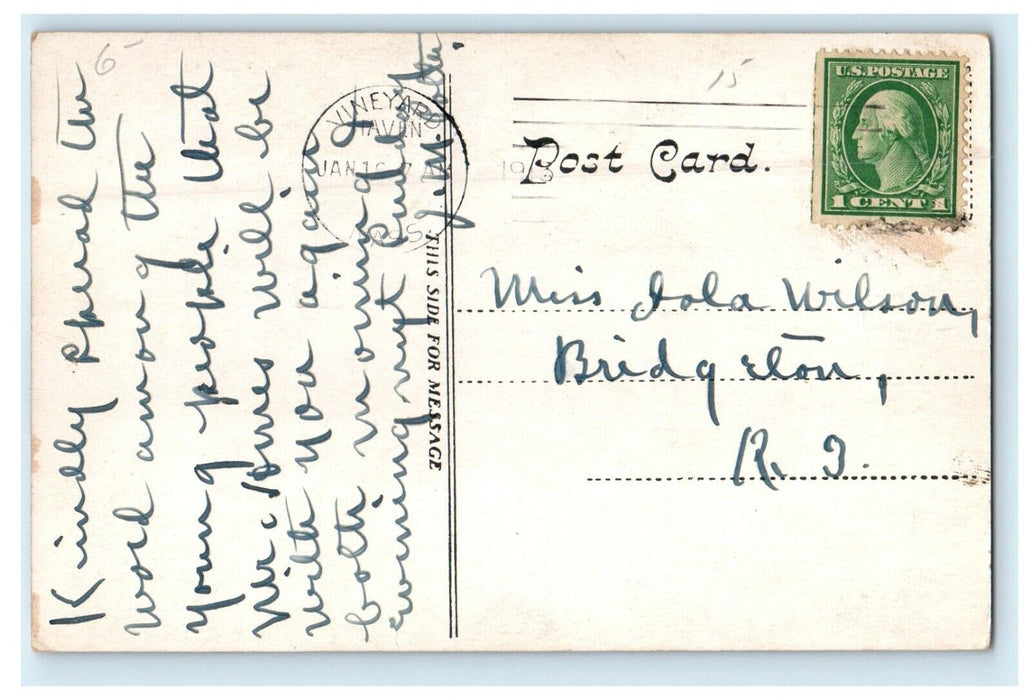 Kindly spread the
word among the
young people that
Mr. Jones will be
with you again
both morning &
evening next Sunday.
J. M.
6-
15
VINEYARD
HAVEN
JAN 7 AM
MASS
19
THIS SIDE FOR MESSAGE
Post Card.
U.S. POSTAGE
1 CENT 1
Miss Iola Wilson,
Bridgeton,
R. I.